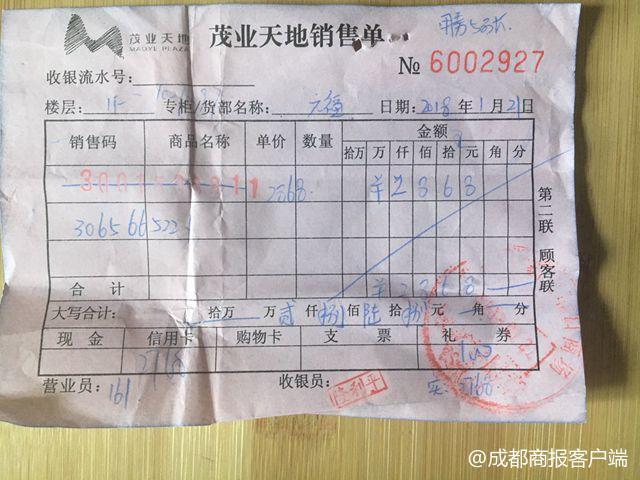 茂业天地 茂业天地销售单
MAOYE PLAZA
№ 6002927
收银流水号:
楼层: 1F 专柜/货部名称: 日期: 2018 年 1 月 21 日
销售码 商品名称 单价 数量 金额
拾万 万 仟 佰 拾 元 角 分
2868 ¥ 2 8 6 8
306566522
合计 ¥ 2 8 6 8
大写合计: 拾万 万 贰 仟 捌 佰 陆 拾 捌 元 角 分
现金 信用卡 购物卡 支票 礼券
2768 100
营业员: 161 收银员: 实: 2768
第二联 顾客联
@成都商报客户端